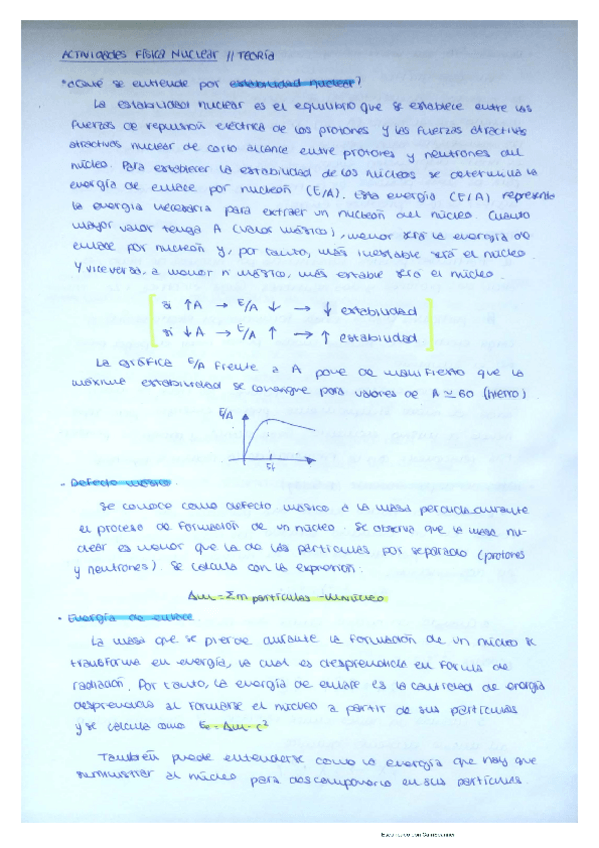 ACTIVIDADES FÍSICA NUCLEAR // TEORÍA
* ¿Qué se entiende por estabilidad nuclear?
La estabilidad nuclear es el equilibrio que se establece entre las
fuerzas de repulsión eléctrica de los protones y las fuerzas atractivas
atractivas nuclear de corto alcance entre protones y neutrones del
núcleo. Para establecer la estabilidad de los núcleos se determina la
energía de enlace por nucleón (E/A). Esta energía (E/A) representa
la energía necesaria para extraer un nucleón del núcleo. Cuanto
mayor valor tenga A (valor másico), menor será la energía de
enlace por nucleón y, por tanto, más inestable será el núcleo.
Y viceversa, a menor nº másico, más estable será el núcleo.
si ↑A → E/A ↓ → ↓ estabilidad
si ↓A → E/A ↑ → ↑ estabilidad
La gráfica E/A frente a A pone de manifiesto que la
máxima estabilidad se consigue para valores de A ≃ 60 (hierro)
E/A
56
- Defecto másico.
Se conoce como defecto másico a la masa perdida durante
el proceso de formación de un núcleo. Se observa que la masa nu-
clear es menor que la de las partículas por separado (protones
y neutrones). Se calcula con la expresión:
Δm = Σm partículas - m núcleo
· Energía de enlace
La masa que se pierde durante la formación de un núcleo se
transforma en energía, la cual es desprendida en forma de
radiación. Por tanto, la energía de enlace es la cantidad de energía
desprendida al formarse el núcleo a partir de sus partículas
y se calcula como Ee = Δm · c²
También puede entenderse como la energía que hay que
suministrar al núcleo para descomponerlo en sus partículas.
Escaneado con CamScanner